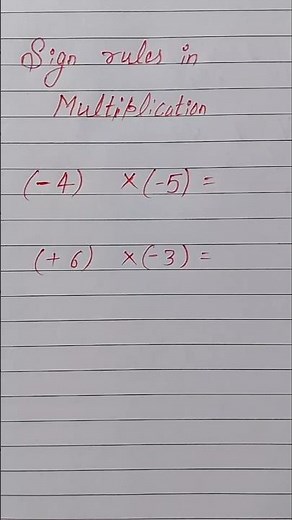 Sign rules in
Multiplication
(-4) × (-5) =
(+6) × (-3) =